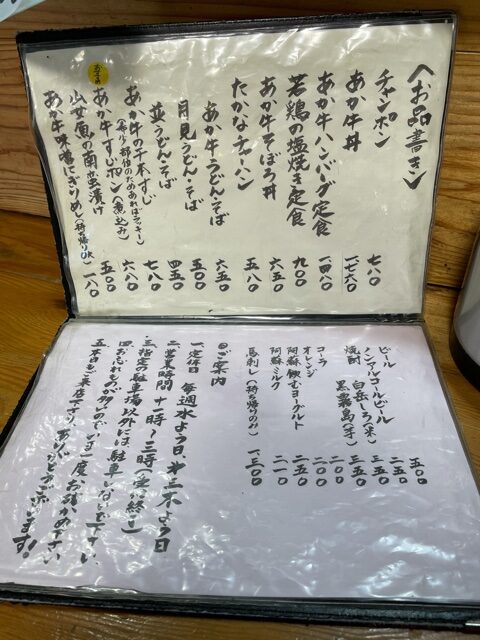 〈お品書き〉
チャンポン 七八〇
あか牛丼 一、七六〇
あか牛ハンバーグ定食 一、四八〇
若鶏の塩焼き定食 九〇〇
あか牛そぼろ丼 六五〇
たかなチャーハン 五八〇
あか牛うどん・そば 六五〇
月見うどん・そば 五〇〇
並うどん・そば 四五〇
あか牛の千本すじ 七八〇
(希少部位のためあればラッキー)
あか牛すじポン(煮込み) 六八〇
山女魚の南蛮漬け 五〇〇
あか牛味噌にぎりめし(持ち帰りOK) 一八〇
ビール 五〇〇
ノンアルコールビール 二五〇
焼酎 白岳しろ(米) 三五〇
黒霧島(芋) 三五〇
コーラ 二〇〇
オレンジ 二〇〇
阿蘇飲むヨーグルト 二五〇
阿蘇ミルク 二一〇
馬刺し(持ち帰りのみ) 一、三〇〇
◎ご案内
一、定休日 毎週水よう日、第三木よう日
二、営業時間 十一時〜三時(麺の終り)
三、指定の駐車場以外には、駐車しないで下さい
四、お忘れものが多いのでもう一度お確かめ下さい
五、本日もご来店下さり、ありがとうございます!